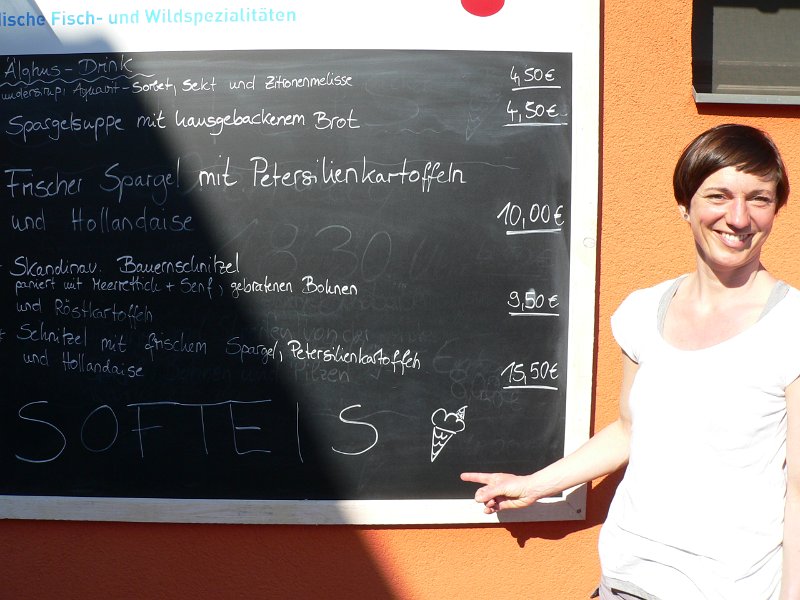 dische Fisch- und Wildspezialitäten
Älghus-Drink
4,50€
Aquavit-Sorbet, Sekt und Zitronenmelisse
Spargelsuppe mit hausgebackenem Brot
4,50€
Frischer Spargel mit Petersilienkartoffeln
und Hollandaise
10,00€
Skandinav. Bauernschnitzel
paniert mit Meerrettich + Senf, gebratenen Bohnen
und Röstkartoffeln
9,50€
* Schnitzel mit frischem Spargel, Petersilienkartoffeln
und Hollandaise
15,50€
SOFTEIS